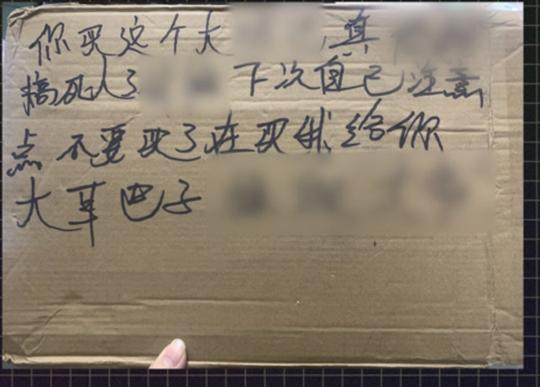 你买这个大 真
搞死人了 下次自己注意
点 不要买了在买我给你
大耳巴子